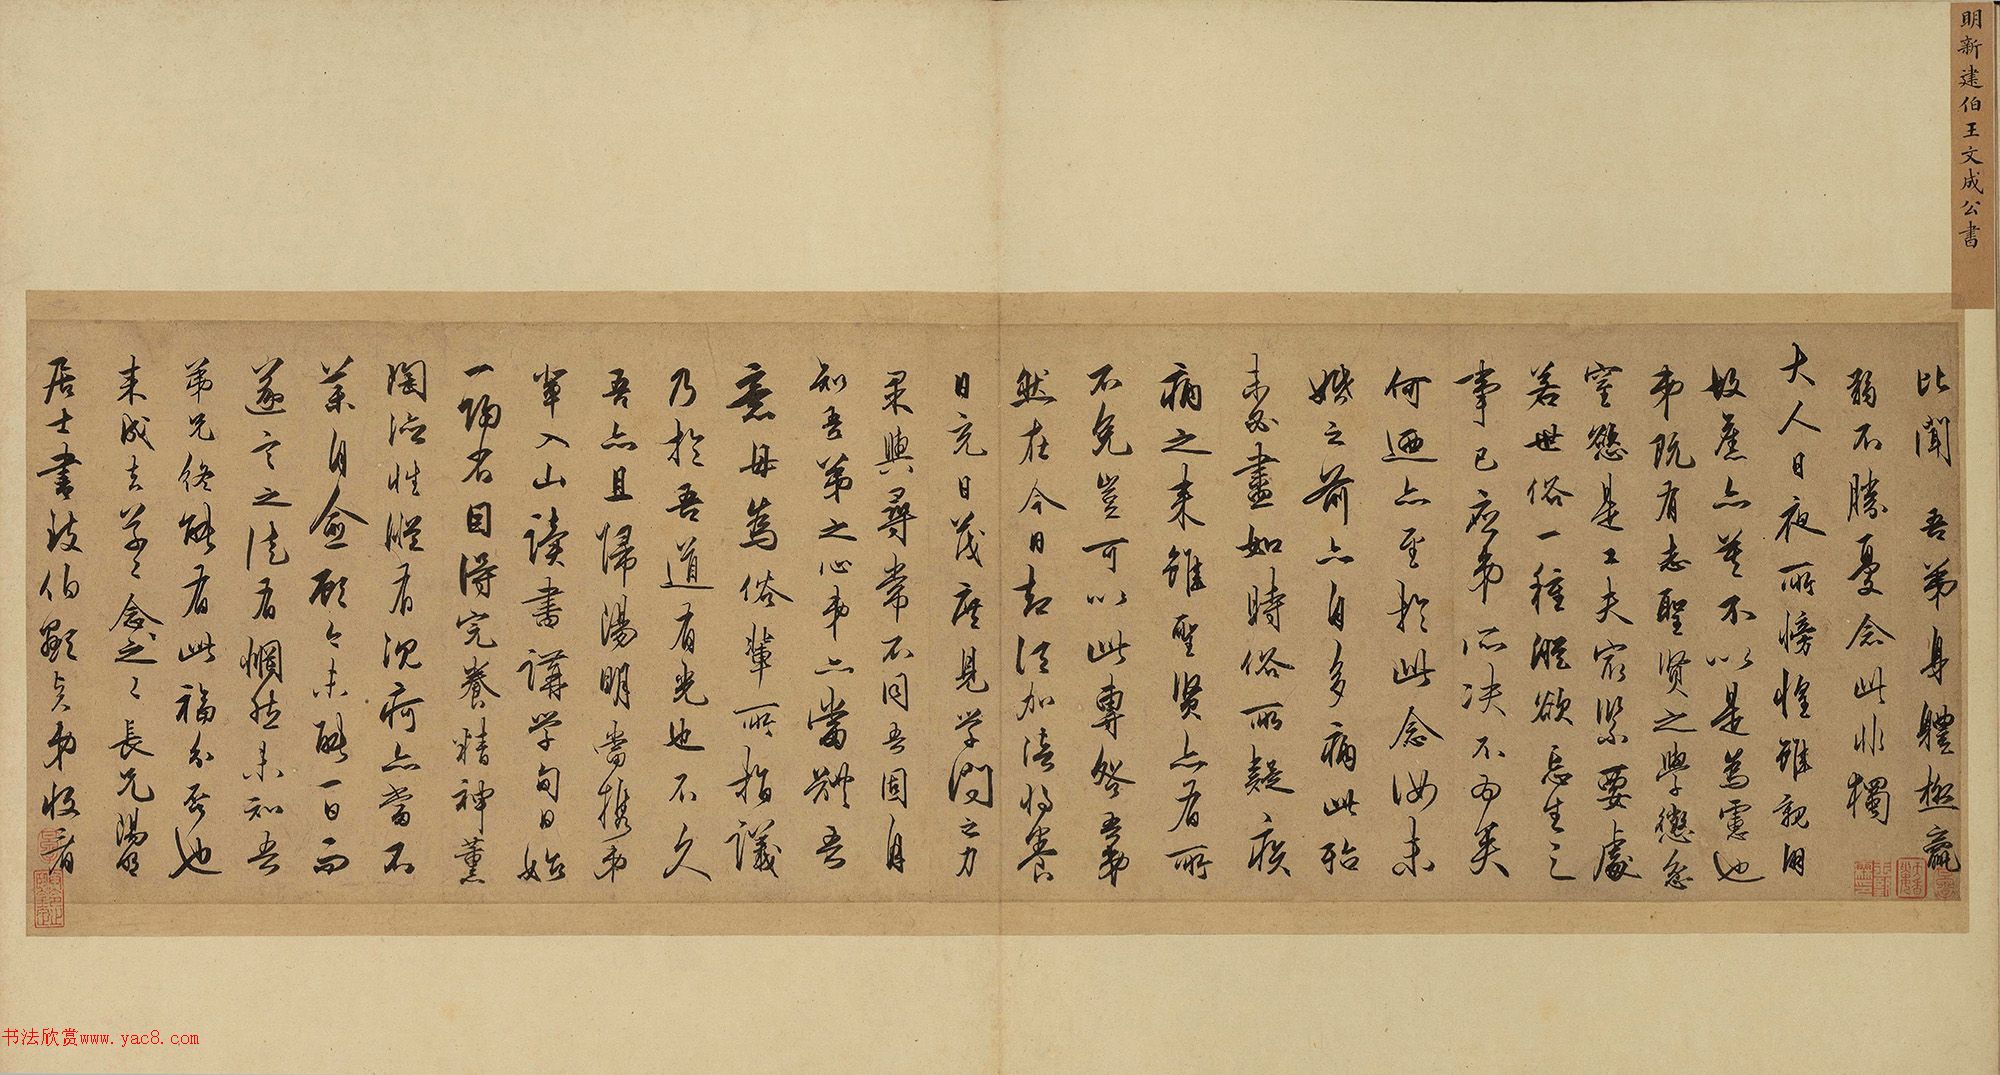 明新建伯王文成公書
比聞吾弟身體極羸
弱不勝憂念此非獨
大人日夜所徬惶雖親朋
故舊亦莫不以是為慮也
弟既有志聖賢之學懲忿
窒慾是工夫最緊要處
若世俗一種縱欲忘生之
事已應弟所決不為矣
何迺亦至於此念汝未
婚之前亦自多病此殆
未必盡如時俗所疑疾
病之來雖聖賢亦有所
不免豈可以此專咎吾弟
然在今日却須加倍將養
日充日茂庶見学問之力
果與尋常不同吾固自
知吾弟之心弟亦當體吾
意毋為俗輩所指議
乃於吾道有光也不久
吾亦且歸陽明當携弟
輩入山讀書講学旬日始
一歸省因得完養精神薰
陶德性縱有沉痾亦當不
藥自愈顧今未能一日而
遂言之徒有惘然未知吾
弟兄終能有此福分否也
来成去草々念之々長兄陽明
居士書致伯顯貞弟收看
书法欣赏www.yac8.com